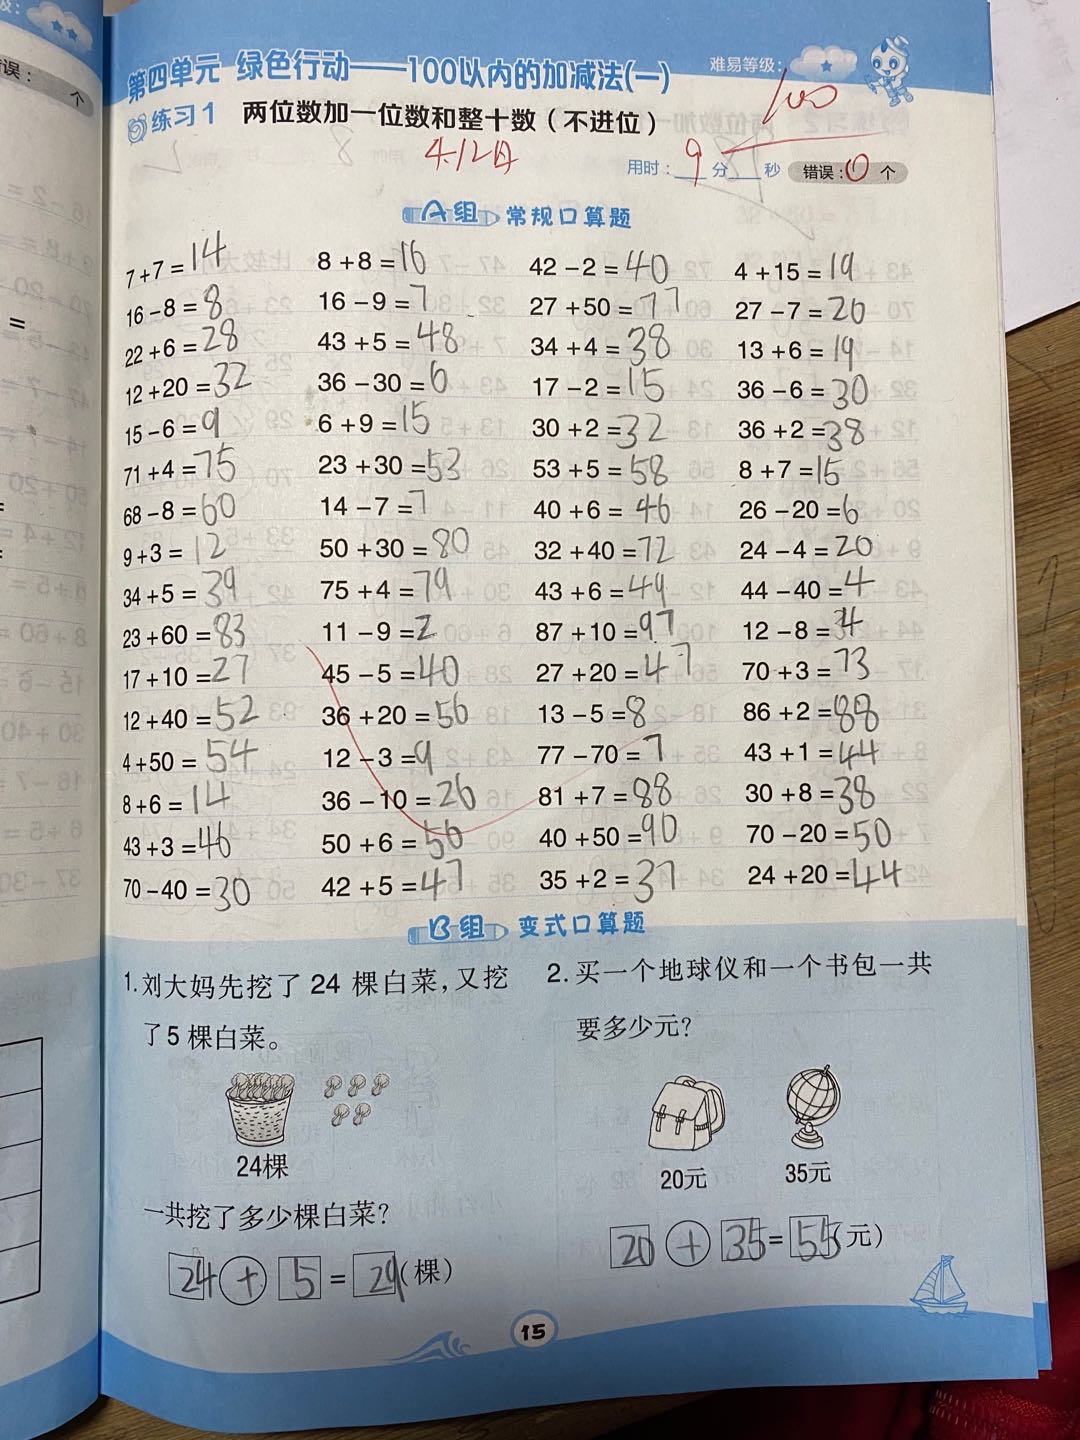 第四单元 绿色行动——100以内的加减法(一)
难易等级:
100
练习1 两位数加一位数和整十数(不进位)
4.12日
用时: 9 分 秒 错误: 0 个
A组 常规口算题
7+7=14 8+8=16 42-2=40 4+15=19
16-8=8 16-9=7 27+50=77 27-7=20
22+6=28 43+5=48 34+4=38 13+6=19
12+20=32 36-30=6 17-2=15 36-6=30
15-6=9 6+9=15 30+2=32 36+2=38
71+4=75 23+30=53 53+5=58 8+7=15
68-8=60 14-7=7 40+6=46 26-20=6
9+3=12 50+30=80 32+40=72 24-4=20
34+5=39 75+4=79 43+6=49 44-40=4
23+60=83 11-9=2 87+10=97 12-8=4
17+10=27 45-5=40 27+20=47 70+3=73
12+40=52 36+20=56 13-5=8 86+2=88
4+50=54 12-3=9 77-70=7 43+1=44
8+6=14 36-10=26 81+7=88 30+8=38
43+3=46 50+6=56 40+50=90 70-20=50
70-40=30 42+5=47 35+2=37 24+20=44
B组 变式口算题
1.刘大妈先挖了24棵白菜,又挖
了5棵白菜。
24棵
一共挖了多少棵白菜?
24+5=29(棵)
2.买一个地球仪和一个书包一共
要多少元?
20元 35元
20+35=55(元)
15